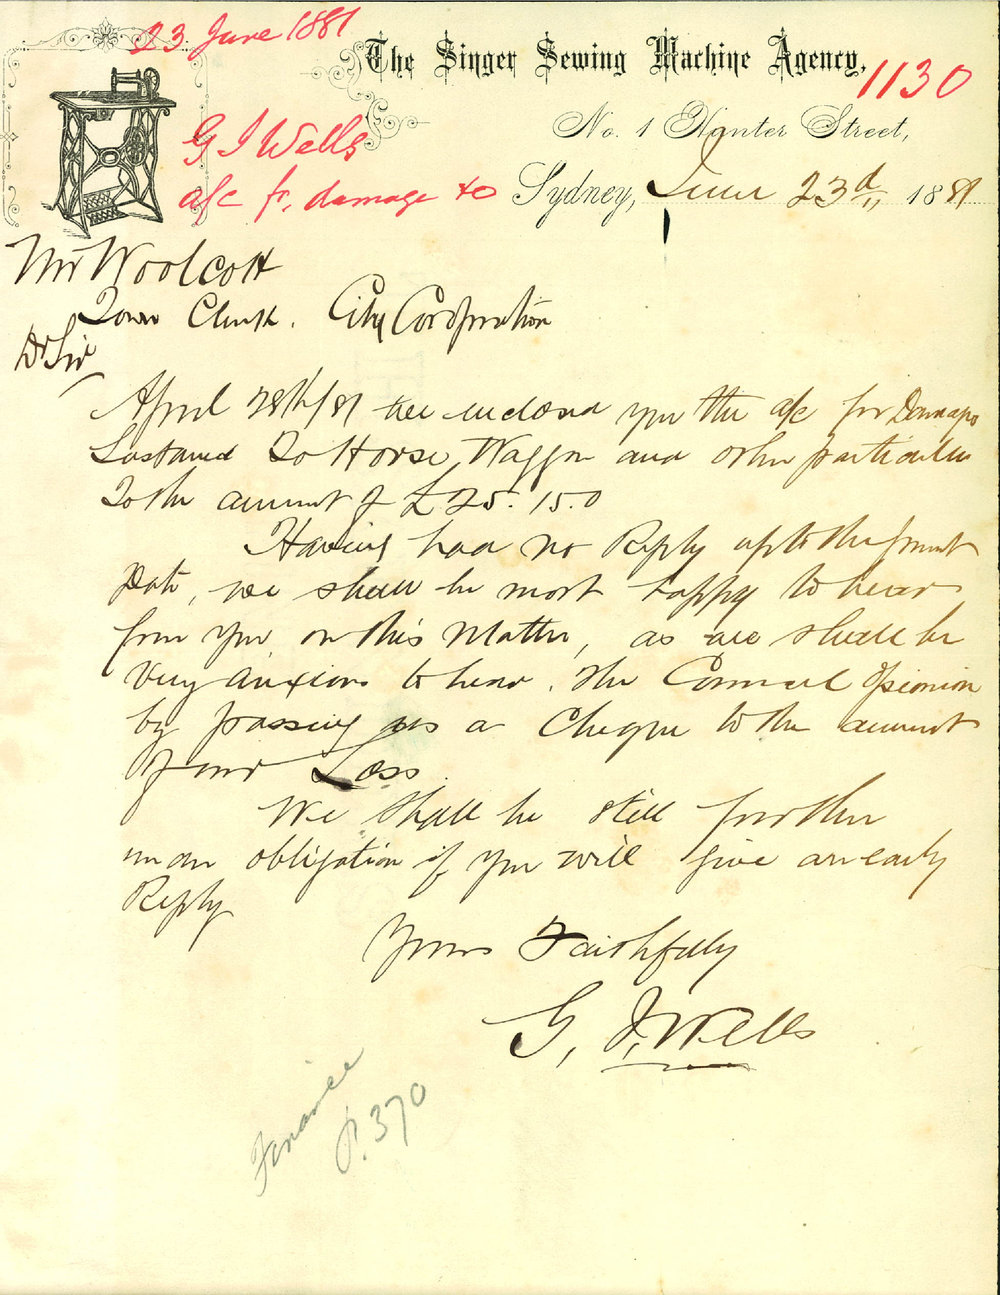 23 June 1881
The Singer Sewing Machine Agency,
1130
No. 1 Hunter Street,
G J Wells
a/c fr. damage to
Sydney, June 23d 1881
Mr Woolcott
Town Clerk. City Corporation
Dr Sir
April 28th/81 we enclosed you the a/c for Damages
Sustained To Horse, Waggon and other particulars
To the amount of £25.15.0
Having had no Reply up to the present
Date, we shall be most happy to hear
from you on this Matter, as we shall be
Very anxious to hear. the Council Opionion
by passing us a Cheque to the amount
of our Loss
We shall be still further
under obligation if you will give an early
Reply
Yours Faithfully
G, J, Wells
Finance
p. 370